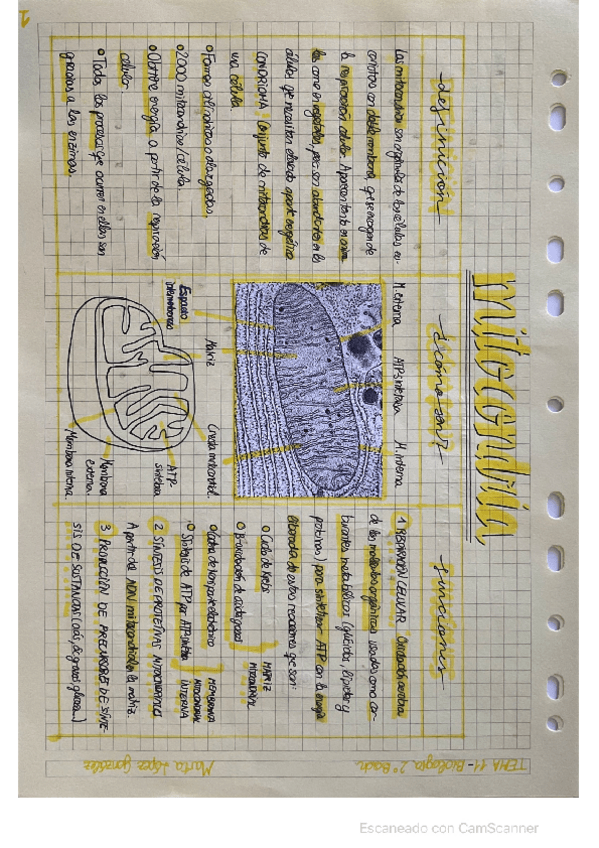 1
mitocondria
definición
Las mitocondrias son orgánulos de las células eu-
cariotas con doble membrana, que se encargan de
la respiración celular. Aparecen tanto en anima-
les como en vegetales, pero son abundantes en las
células que necesitan elevado aporte energético
CONDRIOMA: Conjunto de mitocondrias de
una célula.
Formas cilíndricas o alargadas.
2000 mitocondrias/célula
Obtiene energía a partir de la respiración
celular.
Todos los procesos que ocurren en ellas son
gracias a las enzimas.
¿cómo son?
M. externa ATPsintetasa M. interna
Espacio
intermembranoso
Matriz
Cresta mitocondrial
ATP-
sintetasa
Membrana
externa.
Membrana interna
funciones
1 RESPIRACIÓN CELULAR Oxidación aerobia
de las moléculas orgánicas usadas como car-
burantes metabólicos (glúcidos, lípidos y
proteínas) para sintetizar ATP con la energía
eliminada de estas reacciones que son:
Ciclo de Krebs
β-oxidación de ácidos grasos
MATRIZ
MITOCONDRIAL
Cadena de transporte electrónico
Síntesis de ATP por ATPsintetasa
MEMBRANA
MITOCONDRIAL
INTERNA
2 SÍNTESIS DE PROTEÍNAS MITOCONDRIALES
A partir del ADN mitocondrial en la matriz.
3 PRODUCCIÓN DE PRECURSORES DE SÍNTE-
SIS DE SUSTANCIAS (ácidos grasos, glucosa...)
TEMA 11 - Biología 2º Bach
Marta López González
Escaneado con CamScanner